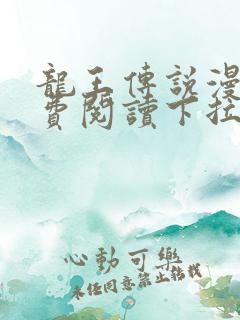 龍王傳説漫
費閱讀下拉
心動可樂
未經同意禁止轉載